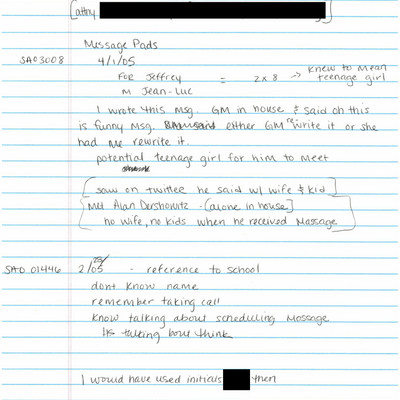 [attny
Message Pads
SAO3008 4/1/05
FOR Jeffrey = 2x8 → knew to mean teenage girl
M Jean-Luc
I wrote this msg. GM in house & said oh this
is funny msg. either GM rewrite it or she
had me rewrite it.
potential teenage girl for him to meet
[saw on twitter he said w/ wife & kid]
Met Alan Dershowitz - [alone in house]
no wife, no kids when he received massage
SAO 01446 2/28/05 - reference to school
dont know name
remember taking call
know talking about scheduling massage
talking bout think
I would have used initials then